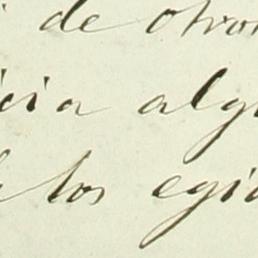 de otro
cia alg
los egi